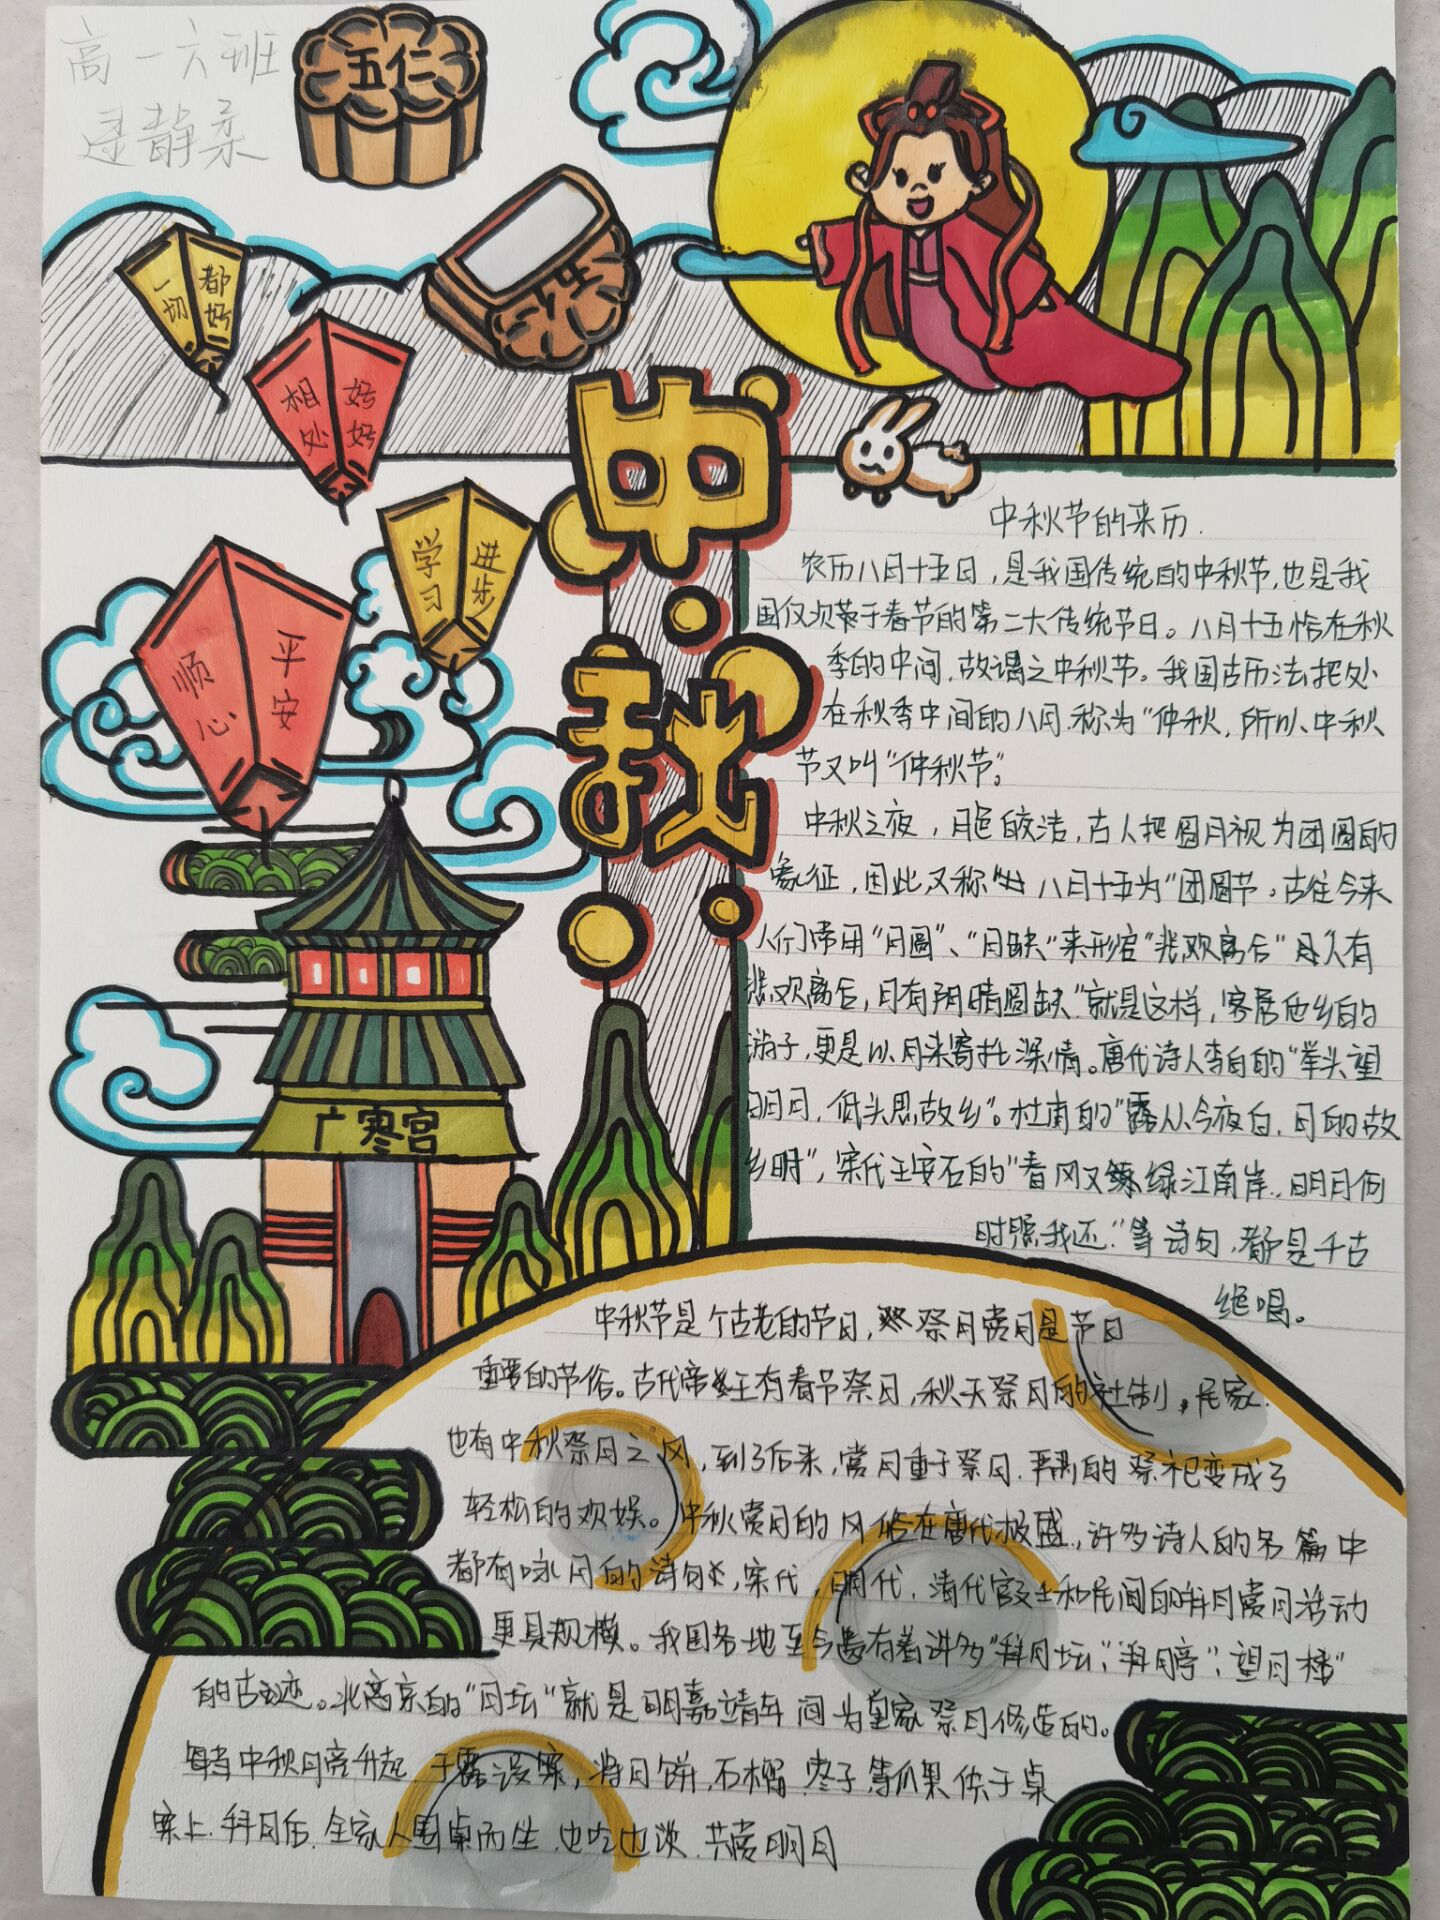 高一六班
静柔
五仁
冰
一切
都好
相处
好好
学习
进步
顺心
平安
中秋
广寒宫
中秋节的来历.
农历八月十五日，是我国传统的中秋节，也是我
国仅次于春节的第二大传统节日。八月十五恰在秋
季的中间，故谓之中秋节。我国古历法把处
在秋季中间的八月，称为"仲秋，所以中秋
节又叫"仲秋节"。
中秋之夜，月色皎洁，古人把圆月视为团圆的
象征，因此，又称八月十五为"团圆节。古往今来
人们常用"月圆"、"月缺"来形容"悲欢离合"
悲欢离合，月有阴晴圆缺"就是这样，客居他乡的
游子，更是以月来寄托深情。唐代诗人李白的"举头望
明月，低头思故乡"。杜甫的"露从今夜白，月的故
乡明"，宋代王安石的"春风又绿江南岸，明月何
时照我还"等诗句，都是千古
绝唱。
中秋节是个古老的节日，祭月赏月是节日
重要的节俗。古代帝王有春节祭日，秋天祭月的社制，民家
也有中秋祭月之风，到了后来，赏月重于祭月，严肃的祭祀变成了
轻松的欢娱。中秋赏月的风俗在唐代极盛，许多诗人的名篇中
都有咏月的诗句，宋代，明代，清代宫廷和民间的拜月赏月活动
更具规模。我国各地至今遗有着许多"拜月坛"，"拜月亭"，望月楼"
的古迹。北京的"月坛"就是明嘉靖年间为皇家祭月修造的。
每当中秋月亮升起，于露设案，将月饼，石榴，枣子等瓜果供于桌
案上，拜月后，全家人围桌而坐，边吃边谈，共赏明月